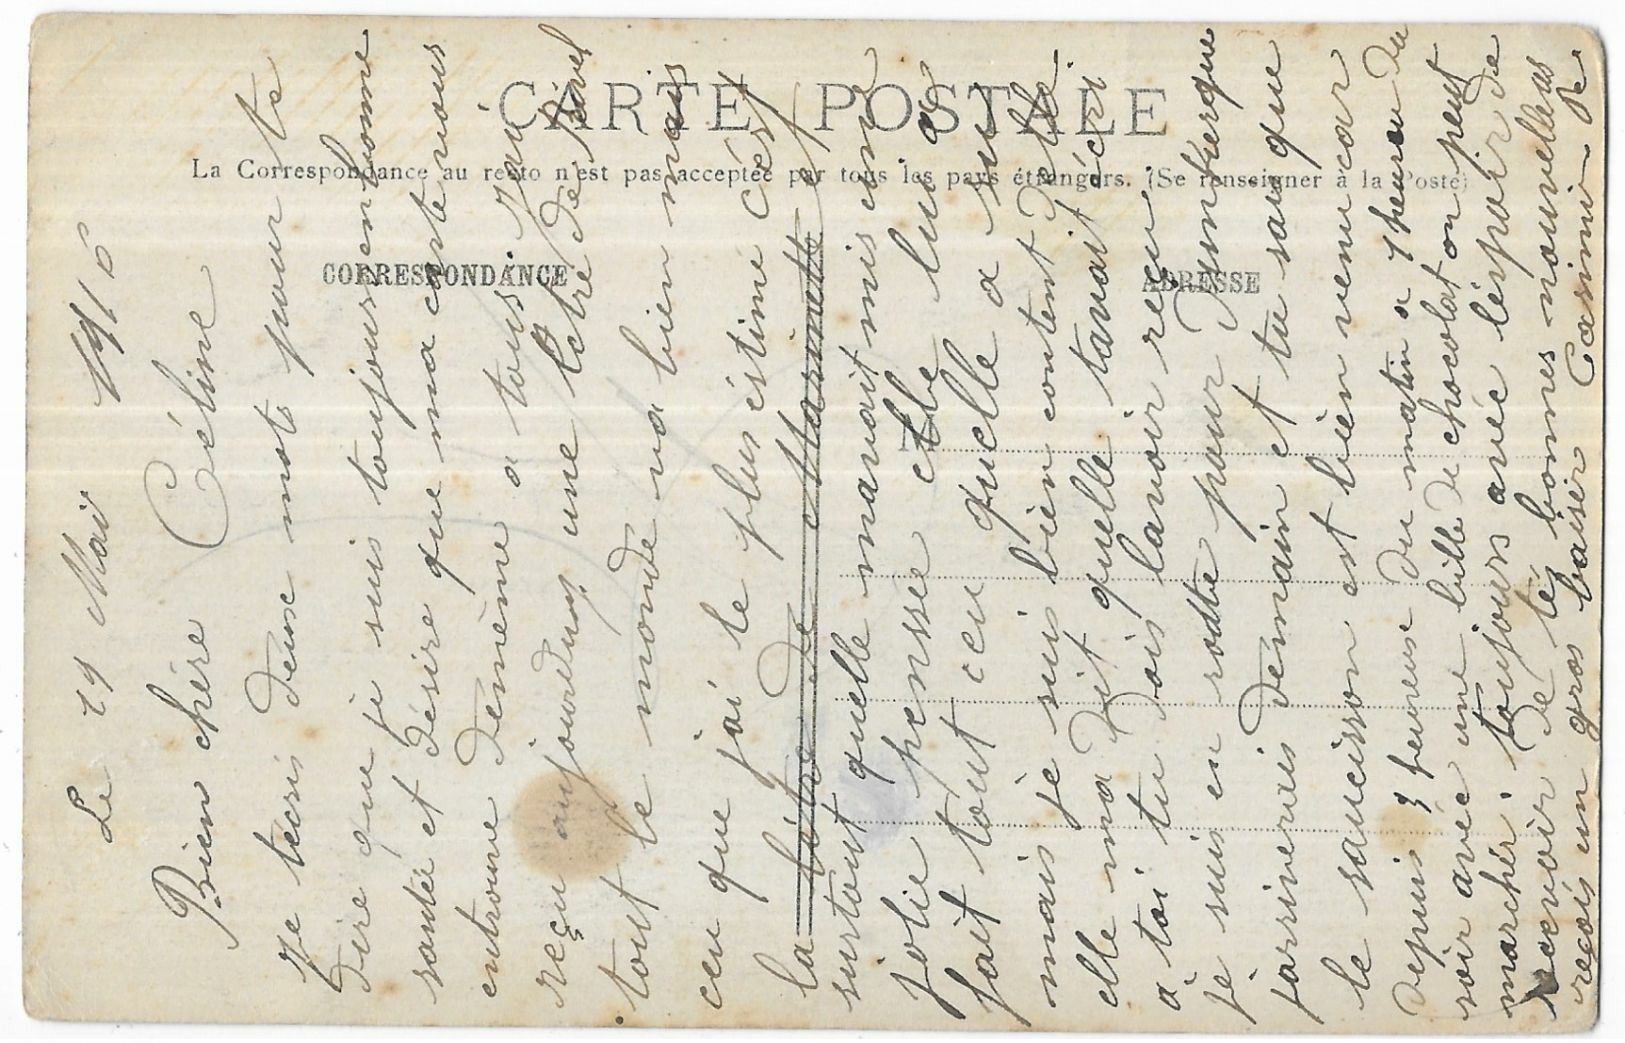 CARTE POSTALE
La Correspondance au recto n'est pas acceptée par tous les pays étrangers. (Se renseigner à la Poste)
CORRESPONDANCE
ADRESSE
Le 19 Mai 1916
Bien chére Céline
Je técris deux mots pour te
dire que je suis toujours en bonne
santée et désire que ma carte vous
entrouve démème a tous jai
reçu aujourduy une létre de
tout le monde va bien mais
ceu que jai le plus éstimé cést
la létre de Marinette et
surtout quelle mavait mis une
jolie pensse elle lua
fait tout ceu quelle a su
mais je suis bien content
elle ma dit quelle tavait écri
à toi tu dois lavoir reçu
je suis en roadte pour
jarriverais démain et tu sais que
le saucisson est bien venu car
depuis 3 heures du matin a 7 heures du
soir avéc une bille de chocolat on peut
marchér. toujours avéc léspoir de
recevoir de tés bonnes nouvelles
reçois un gros baiser Casimir